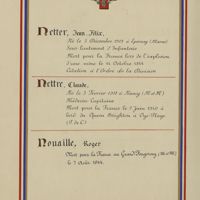 Netter, Jean Félix,
Né le 3 Décembre 1919 à Epernay (Marne)
Sous-lieutenant d'Infanterie
Mort pour la France lors de l'explosion
d'une mine le 21 Octobre 1944
Citation à l'Ordre de la Division
Nettre, Claude,
Né le 3 Février 1911 à Nancy (M et M)
Médecin Capitaine
Mort pour la France le 1 Juin 1940 à
bord du Queen Brighton à Oye-Plage
(P. de C.)
Nouaille, Roger
Mort pour la France au Grand Fougeray (M et M)
le 7 Août 1944.